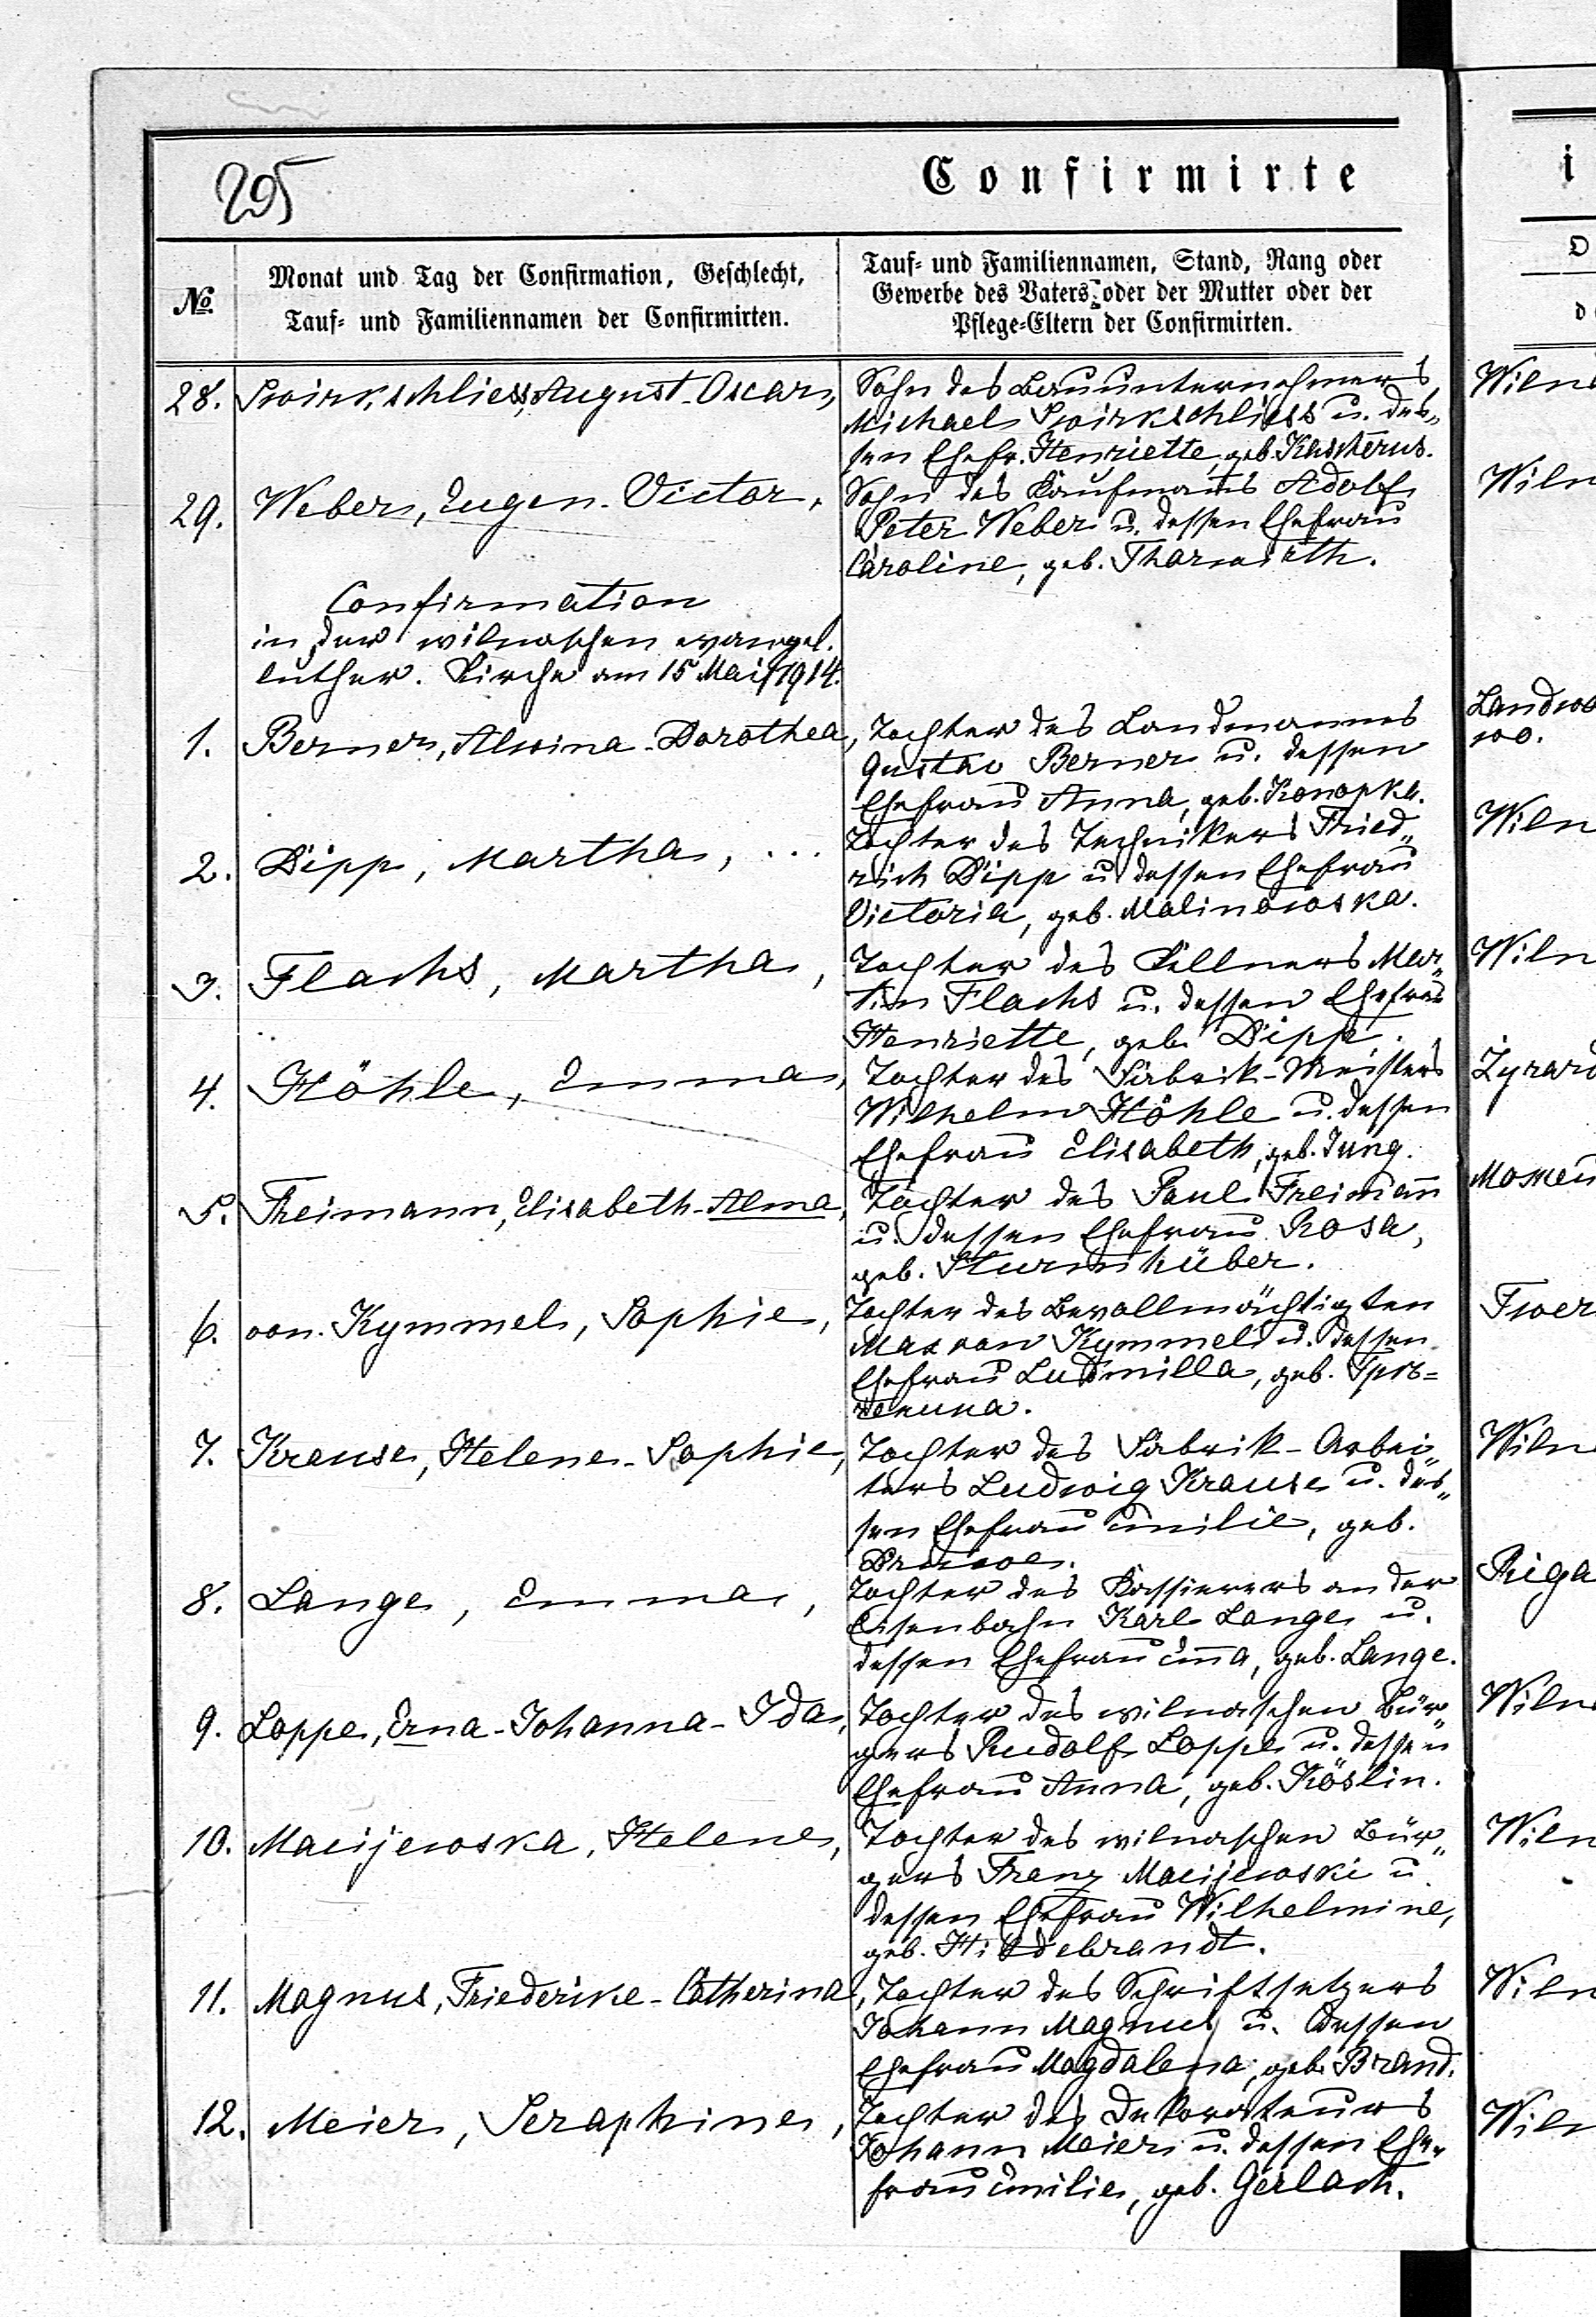 295
Confirmirte
i
№
Monat und Tag der Confirmation, Geschlecht,
Tauf- und Familiennamen der Confirmirten.
Tauf- und Familiennamen, Stand, Rang oder
Gewerbe des Vaters oder der Mutter oder der
Pflege-Eltern der Confirmirten.
28. Swirkschliess, August-Oscar,
Sohn des Bauunternehmers
Michael Swirkschliess u. des„
sen Ehefr. Henriette, geb.
Wiln
29. Weber, Eugen-Victor,
Sohn des Kaufmanns Adolf
Peter Weber u. dessen Ehefrau
Caroline, geb.
Wiln
Confirmation
in der wilnaschen evangel.
luther. Kirche am 15 Mai 1914.
1. Berner, Alwina-Dorothea,
Tochter des Landmannes
Gustav Berner u. dessen
Ehefrau Anna, geb. Konopka.
Landwa
2. Dipp, Martha, ...
Tochter des Technikers Fried„
rich Dipp u. dessen Ehefrau
Victoria, geb. Malinowska.
Wiln
3. Flachs, Martha,
Tochter des Kellners Mar„
tin Flachs u. dessen Ehefrau
Henriette, geb. Dipp.
Wiln
4. Höhle, Emma,
Tochter des Fabrik-Meisters
Wilhelm Höhle u. dessen
Ehefrau Elisabeth, geb. Jung.
Żyrard
5. Freimann, Elisabeth-Alma,
Tochter des Paul Freimann
u. dessen Ehefrau Rosa,
geb. Sturmhüber.
6. von Kymmel, Sophie,
Tochter des Bevollmächtigten
Max von Kymmel u. dessen
Ehefrau Ludmilla, geb.
Twer
7. Krause, Helene-Sophie,
Tochter des Fabrik-Arbei„
ters Ludwig Krause u. des„
sen Ehefrau Emilie, geb.
Wiln
8. Lange, Emma,
Tochter des Kassierers an der
Eisenbahn Karl Lange u.
dessen Ehefrau Em̅a, geb. Lange.
Riga
9. Loppe, Erna-Johanna-Ida,
Tochter des wilnaschen Bür„
gers Rudolf Loppe u. dessen
Ehefrau Anna, geb. Köslin.
Wiln
10. Macijewska, Helene,
Tochter des wilnaschen Bür„
gers Franz Macijewski u.
dessen Ehefrau Wilhelmine,
geb. Hildebrandt.
Wiln
11. Magnus, Friederike-Catherina,
Tochter des Schriftsetzers
Johann Magnus u. dessen
Ehefrau Magdalena, geb. Brand.
Wiln
12. Meier, Seraphine,
Tochter des Dekorateurs
Johann Meier u. dessen Ehe„
frau Emilie, geb. Gerlach.
Wiln